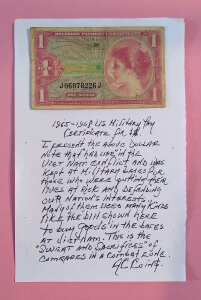 MILITARY PAYMENT CERTIFICATE
1
J06870226J
1
ONE DOLLAR
1965-1968 US Military Pay
Certificate for $1.
I present the above dollar
note that "had use" in the
Viet Nam conflict and was
kept at military bases for
those who were putting their
lives at risk and defending
our nation's interests.
Many of them used many kinds
like the bill shown here
to buy goods in the bases
at Vietnam. This is the
"Sweat and Sacrifices" of
comrades in a combat zone.